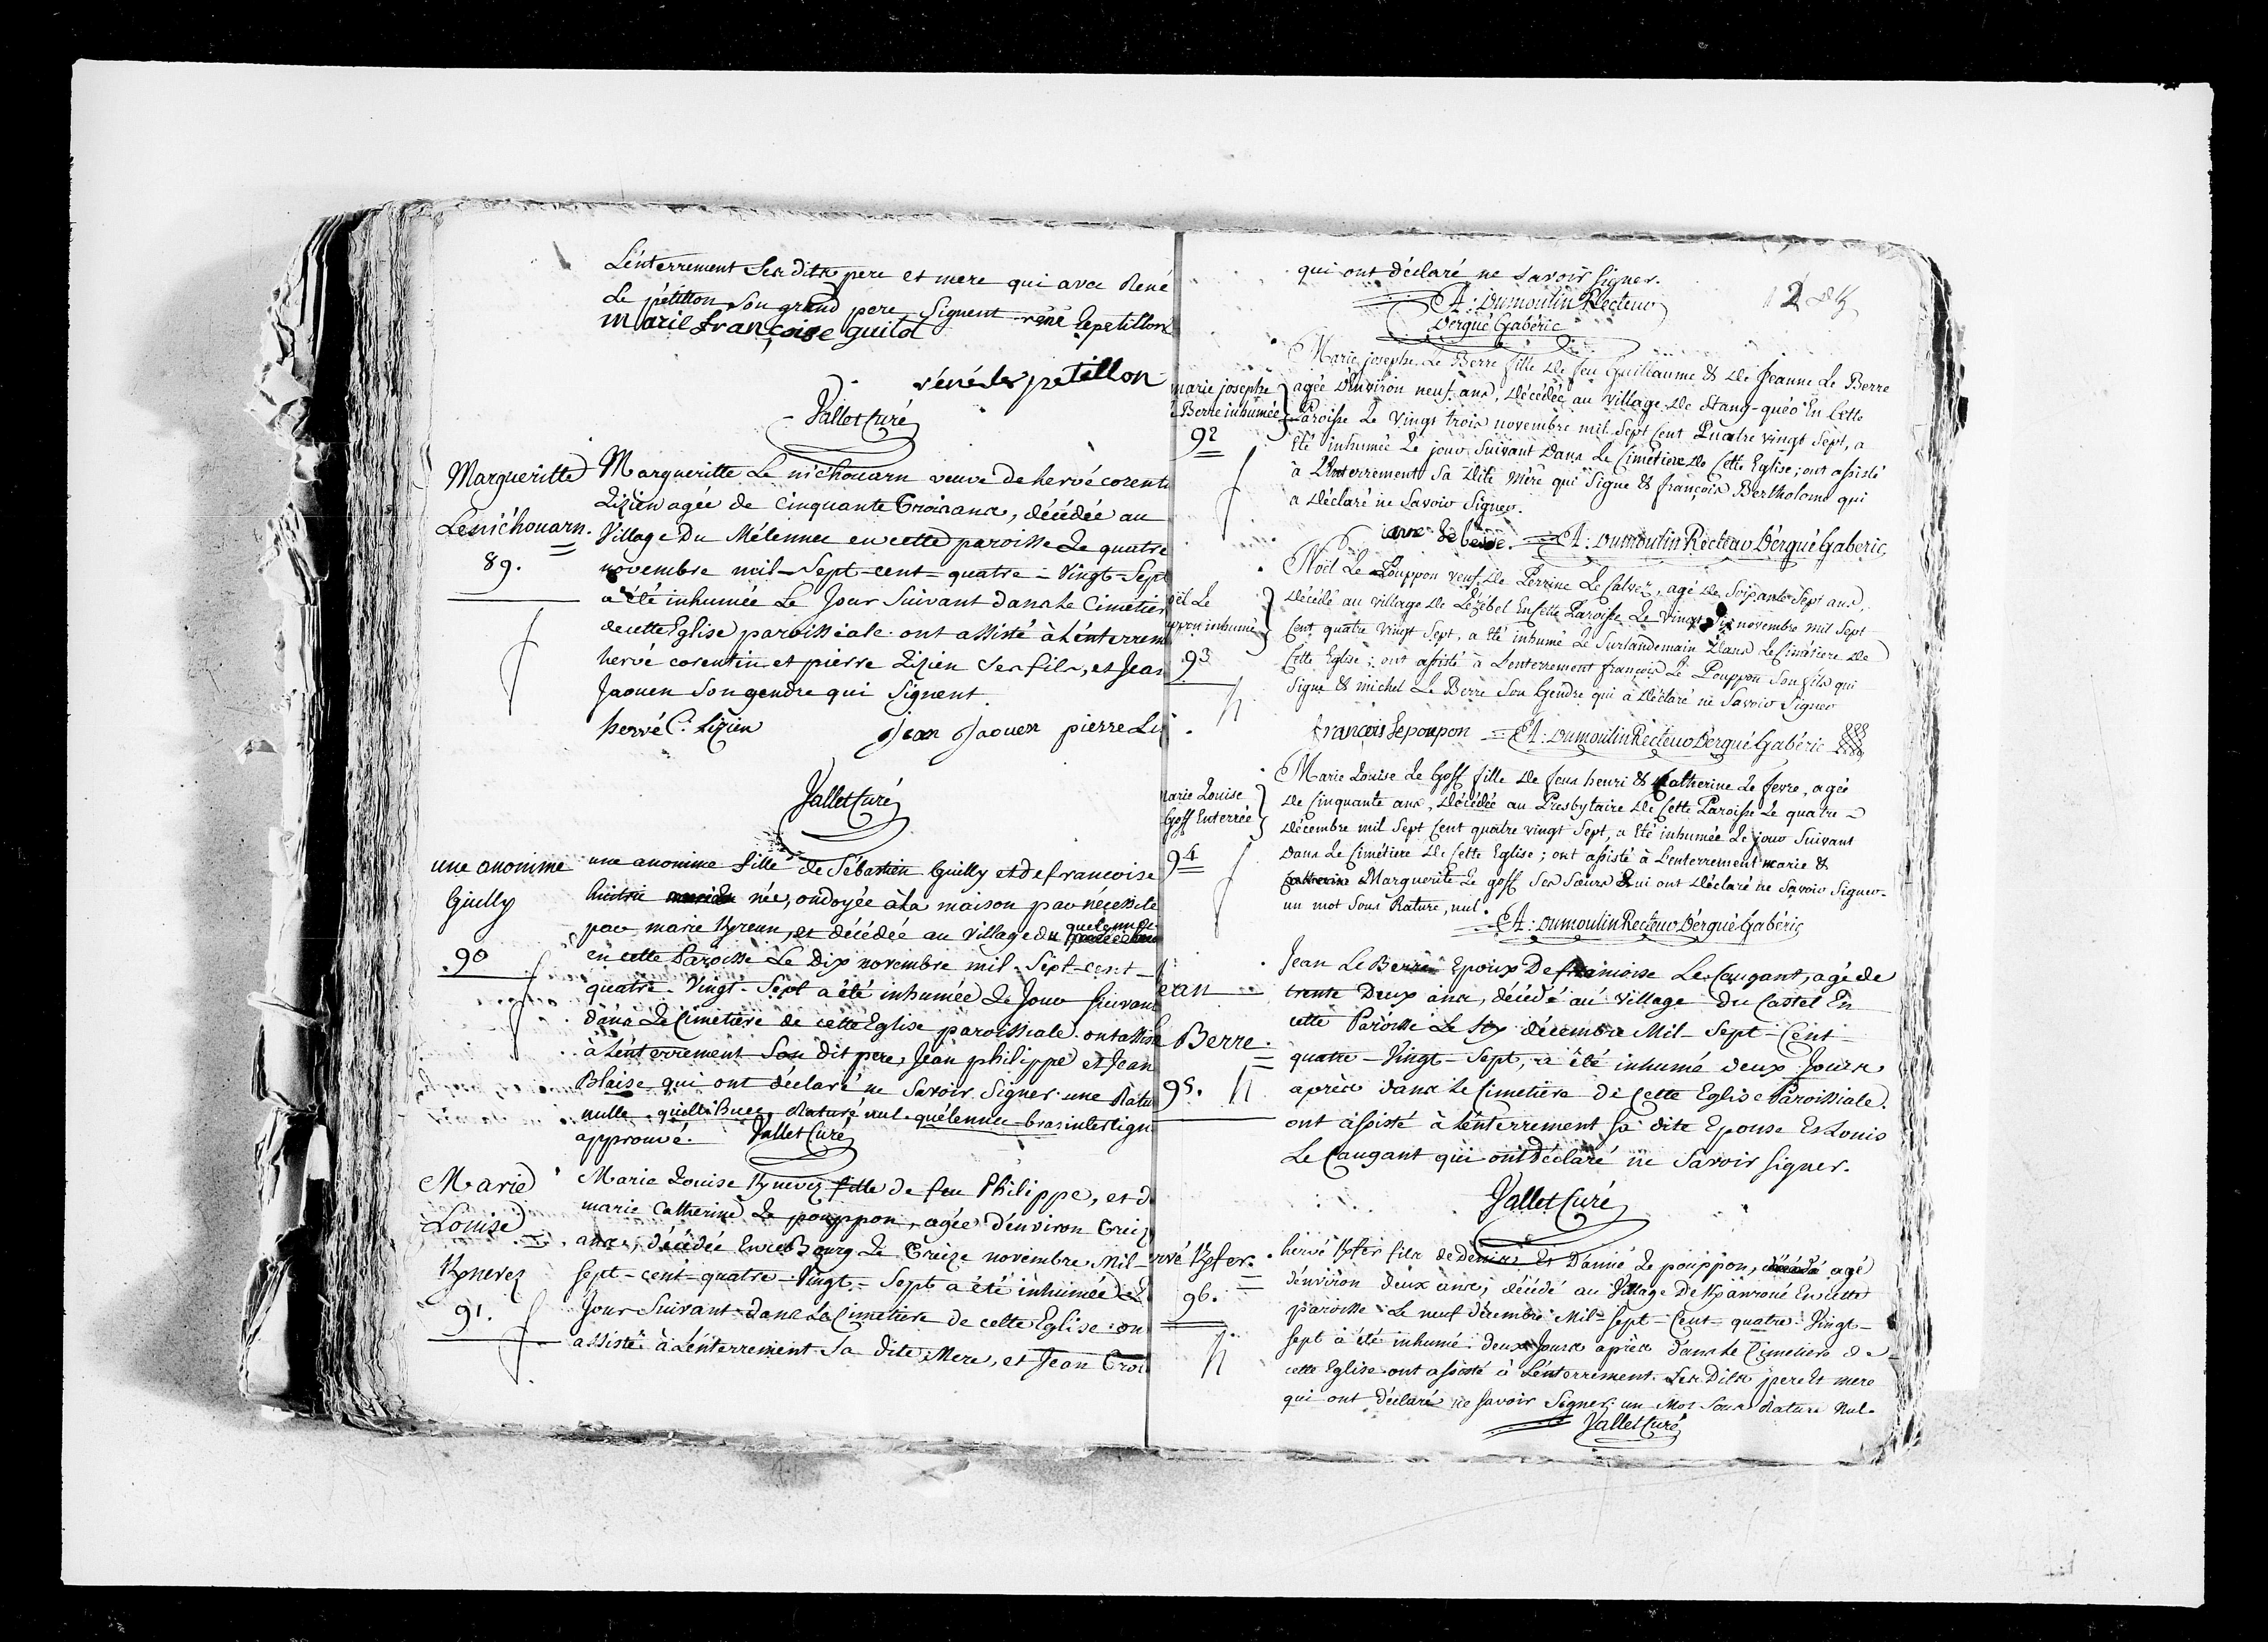 L'énterrement Ses dits pere et mere qui avec René
Le pétillon Son grand pere Signent réné Lepetillon
marie françoise guitot
réné le petillon
Vallet Curé
Margueritte
Le nichouarn.
89.
Margueritte Le nichouarn veuve de hervé corenti
Lizien agée de Cinquante Trois ans, décédée au
Village Du Mélennec en cette paroisse Le quatre
novembre mil-Sept-cent-quatre-Vingt-Sept
a été inhumée Le Jour Suivant dans le Cimetier
de cette Eglise paroissiale. ont assisté à L'énterrem
hervé corentin et pierre Lizien Ses fils, et Jean
Jaouen Son gendre qui Signent
hervé C. Lizien Jean Jaouen pierre Li
Vallet Curé
une anonime
Guilly
90
une anonime fille de Sébastien Guilly et de francoise
née, ondoyée à La maison par nécessité
par marie Kgreun, et décédée au Village du quélennec
en cette Paroisse Le Dix novembre mil-Sept-cent-
quatre-Vingt-Sept a été inhumée Le Jour Suivant
dans Le Cimetiere de cette Eglise paroissiale. ont assisté
à L'énterrement Son dit pere, Jean philippe et Jean
Blaise qui ont déclaré ne Savoir Signer. une Ratu
nulle. Raturé nul. quélennec-bras interlign
approuvé. Vallet Curé
Marie
Louise
Kgnevez
91.
Marie Louise Kgnevez fille de feu Philippe, et d
marie Catherine Le pouppon, agée d'environ Treiz
ans, décédée en ce Bourg Le Treize novembre Mil-
Sept-cent-quatre-Vingt-Sept a été inhumée Le
Jour Suivant dans Le Cimetiere de cette Eglise: on
assisté à L'énterrement Sa dite Mere, et Jean Croi
qui ont déclaré ne Savoir Signer.
A: Dumoulin Recteur
D'ergué Gabéric
12
marie josephe
Berre inhumée
92
Marie josephe Le Berre fille de feu Guillaume & de Jeanne Le Berre
agée d'environ neuf ans, décédée au village de Stang-quéo En Cette
Paroisse Le Vingt trois novembre mil Sept Cent Quatre vingt Sept, a
Eté inhumée Le jour Suivant dans Le Cimétiere de Cette Eglise; ont assisté
à L'Enterrement Sa dite mère qui Signe & françois Bertholome qui
a déclaré ne Savoir Signer.
Le berre. A: Dumoulin Recteur D'ergué Gaberic
oël Le
uppon inhumé
93
Noël Le Pouppon veuf de Perrine Le Calvez, agé de Soixante Sept ans,
décédé au village de Lézébel En Cette Paroisse Le Vingt Six novembre mil Sept
Cent quatre Vingt Sept, a Eté inhumé Le Surlandemain dans Le Cimétiere de
Cette Eglise; ont assisté à L'enterrement françois Le Pouppon Son fils qui
Signe & michel Le Berre Son Gendre qui a déclaré ne Savoir Signer
françois Lepoupon A: Dumoulin Recteur D'ergué Gabéric
marie Louise
Goff Enterrée
94
Marie Louise Le Goff fille de feus henri & Catherine Le fevre, agée
de Cinquante ans, décédée au Presbytaire de Cette Paroisse Le quatre
décembre mil Sept Cent quatre vingt Sept, a Eté inhumée Le jour Suivant
Dans Le Cimétiere de Cette Eglise; ont assisté à L'enterrement marie &
Marguerite Le goff Ses Sœurs qui ont déclaré ne Savoir Signer.
un mot Sous Rature, nul.
A: Dumoulin Recteur D'ergué Gabéric
ean
Berre.
95.
Jean Le Berre Epoux De francoise Le Caugant, agé de
trente Deux ans, décédé au Village Du Castel En
cette Paroisse Le Six décembre Mil-Sept-Cent
quatre-Vingt-Sept, a été inhumé deux Jours
après dans Le Cimetiere de Cette Eglise Paroissiale.
ont assisté à L'énterrement Sa dite Epouse Et Louis
Le Caugant qui ont déclaré ne Savoir Signer.
Vallet Curé
rvé Kfer.
96.
hervé Kfer fils de Denis Et D'anne Le pouppon, agé
d'environ deux ans, décédé au Village De Kanroué En cette
paroisse Le neuf décembre Mil-Sept-Cent-quatre-Vingt-
Sept a été inhumé deux Jours après dans Le Cimetiere de
cette Eglise. ont assisté à L'énterrement Ses Dits pere Et mere
qui ont déclaré ne Savoir Signer. un Mot Sous Rature Nul.
Vallet Curé